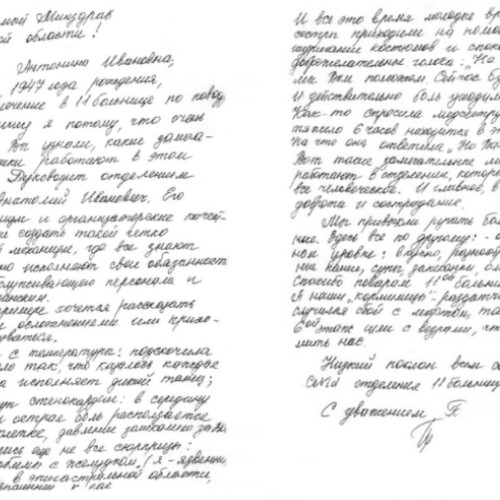 мый Минздрав
й области!
Антонина Ивановна,
1947 года рождения,
лечение в 11 больнице по повод
пишу я потому, что очень
Вы узнали, какие замеча-
работают в этом
Руководит отделением
Анатолий Иванович. Его
и организаторские качест-
создать такой четко
механизм, где все знают
исполняют свои обязанност
служивающего персонала и
хочется рассказать
осложнениями мы прихо-
с температуры: подскочила
ло так, что каждые
исполняет дикий танец;
ступ стенокардии: в середину
острая боль расползается
клетке, давление
ись еще не все сюрпризы:
с желудком (я - язвенни
в эпигастральной области,
И все это время молодые вр
сестры приходили на помо
шуршание костюмов и спок
доброжелательные голоса: "На
мы Вам поможем. Сейчас бу
И действительно боль уходил
Как-то спросила медсестру
тяжело 6 часов находится в э
На что она ответила: "Но Вам
Вот такие замечательные лю
работают в отделении, котор
все человеческое. И главное, в
доброта и сострадание.
Мы привыкли ругать боль
ние. Здесь все по другому: - о
ном уровне: вкусно, разнооб
ные каши, супы, запеканки, ом
Спасибо поварам 11ой больн
А наши "кормилицы" раздатч
случался сбой с лифтом, та
6ой этаж шли с ведрами, что
мить нас.
Низкий поклон всем со
отделения 11 больниц
С уважением П